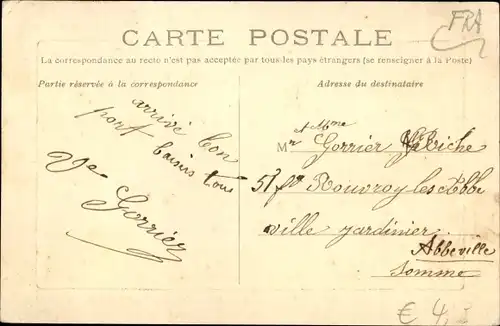 FRA
CARTE POSTALE
La correspondance au recto n'est pas acceptée par tous les pays étrangers (se renseigner à la Poste)
Partie réservée à la correspondance
Adresse du destinataire
arrivé bon
port baisis tous
Ve Gorrier
et Mme
Mr Gorrier
51 Rouvroy les Abbe
ville jardinier
Abbeville
Somme
€ 4,